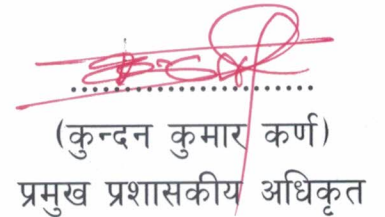 (कुन्दन कुमार कर्ण)
प्रमुख प्रशासकीय अधिकृत